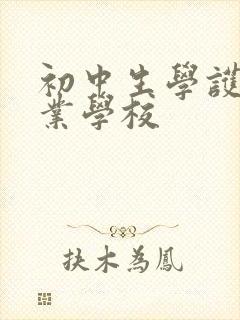 初中生學護
業學校
扶木為鳳